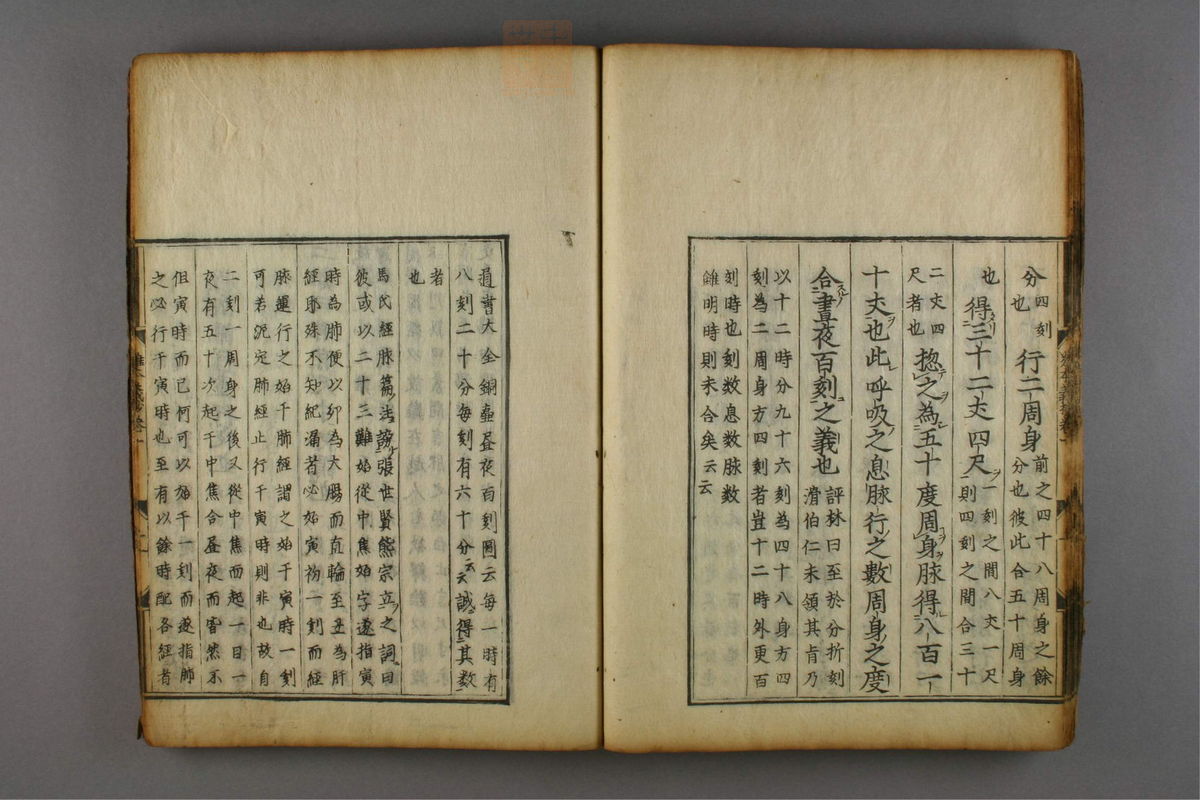 分四刻也行二周身前之四十八周身之餘分也彼此合五十周身
也得三十二丈四尺一刻之間八丈一尺則四刻之間合三十
二丈四尺者也惣之為五十度周身脉得八百一
十丈也此呼吸之息脉行之數周身之度
合晝夜百刻之義也評林曰至於分折刻滑伯仁未領其肯乃
以十二時分九十六刻為四十八身方四
刻為二周身方四刻者豈十二時外更百
刻時也刻数息数脉数
雖明時則未合矣云云
道書大全銅壷昼夜百刻圖云每一時有
八刻二十分每刻有六十分云云誠得其数
者也
馬氏經脉篇註謗張世賢熊宗立之詞曰
彼或以二十三難始從中焦始字遂指寅
時為肺便以卯為大腸而直輪至丑為肝
經耶殊不知紀漏者必始寅初一刻而經
脉運行之始于肺經謂之始于寅時一刻
可若泥定肺經止行于寅時則非也故自
二刻一周身之後又從中焦而起一日一
夜有五十次起于中焦合昼夜而皆然不
但寅時而已何可以始于一刻而遂指肺
之必行于寅時也至有以餘時配各經者